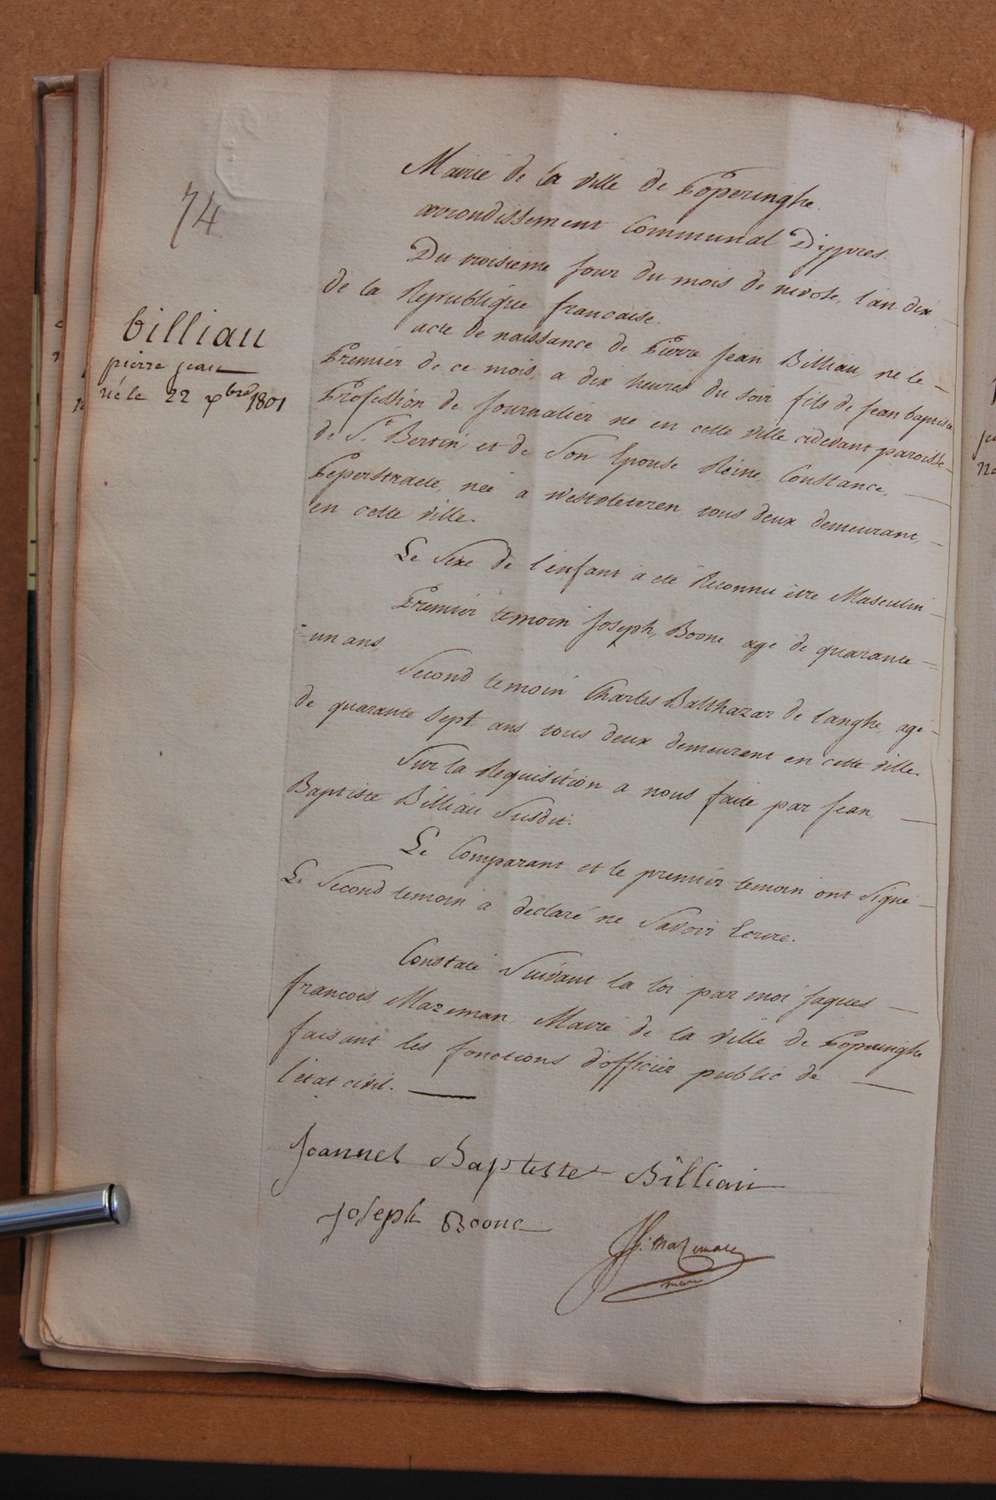 74
billiau
pierre jean
né le 22 xbre 1801
Mairie de la ville de Poperinghe.
arrondissement Communal D'ypres.
Du troisieme jour du mois de nivose, l'an dix
de la Republique francaise.
acte de naissance de Pierre Jean Billiau, né le
Premier de ce mois, a dix heures du soir fils de Jean baptiste
Profession de journalier né en cette ville cidevant paroisse
de St Bertin, et de son Epouse Reine Constance,
Peperstraete, née a westvleteren tous deux demeurant,
en cette ville.
Le Sexe de l'enfant a été Reconnu être Masculin
Premier temoin Joseph Boone agé de quarante
-un ans
Second temoin Charles Balthazar de langhe, agé
de quarante sept ans tous deux demeurent en cette ville.
Sur la Requisition a nous faite par Jean
Baptiste Billiau Susdit.
Le Comparant et le premier temoin ont Signé
Le Second temoin a déclaré ne Savoir Ecrire.
Constaté Suivant la loi par moi Jaques
francois Mazeman Maire de la ville de Poperinghe
faisant les fonctions d'officier public de
l'état civil.
Joannes Baptiste Billiau
Joseph Boone
Mazeman
maire